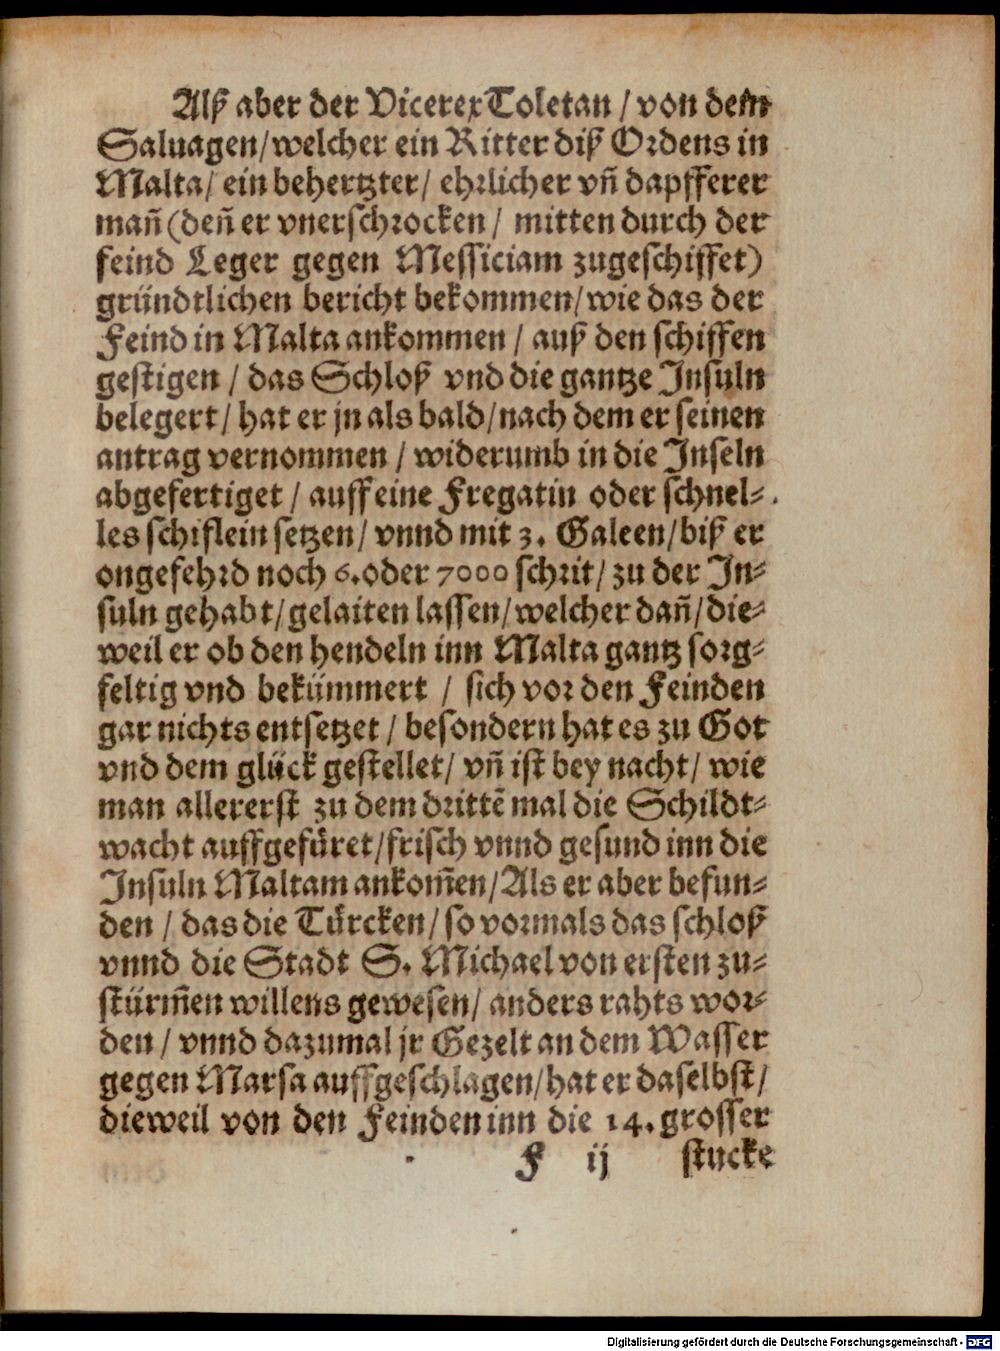 Alß aber der Vicerex Toletan / von dem
Saluagen/welcher ein Ritter diß Ordens in
Malta/ ein behertzter/ ehrlicher vñ dapfferer
mañ (deñ er vnerschrocken / mitten durch der
feind Leger gegen Messiciam zugeschiffet)
gründtlichen bericht bekommen/wie das der
Feind in Malta ankommen / auß den schiffen
gestigen / das Schloß vnd die gantze Insuln
belegert/ hat er jn als bald/nach dem er seinen
antrag vernommen / widerumb in die Inseln
abgefertiget / auff eine Fregatin oder schnel⸗
les schiflein setzen/ vnnd mit 3. Galeen/biß er
ongefehrd noch 6. oder 7000 schrit/ zu der In⸗
suln gehabt/gelaiten lassen/welcher dañ/die⸗
weil er ob den hendeln inn Malta gantz sorg⸗
feltig vnd bekümmert / sich vor den Feinden
gar nichts entsetzet / besondern hat es zu Got
vnd dem glück gestellet/ vñ ist bey nacht/ wie
man allererst zu dem drittẽ mal die Schildt⸗
wacht auffgefüret/frisch vnnd gesund inn die
Insuln Maltam ankom̃en/Als er aber befun⸗
den / das die Türcken/so vormals das schloß
vnnd die Stadt S. Michael von ersten zu⸗
stürm̃en willens gewesen/ anders rahts wor⸗
den / vnnd dazumal jr Gezelt an dem Wasser
gegen Marsa auffgeschlagen/hat er daselbst/
dieweil von den Feinden inn die 14. grosser
F ij stucke
Digitalisierung gefördert durch die Deutsche Forschungsgemeinschaft - DFG